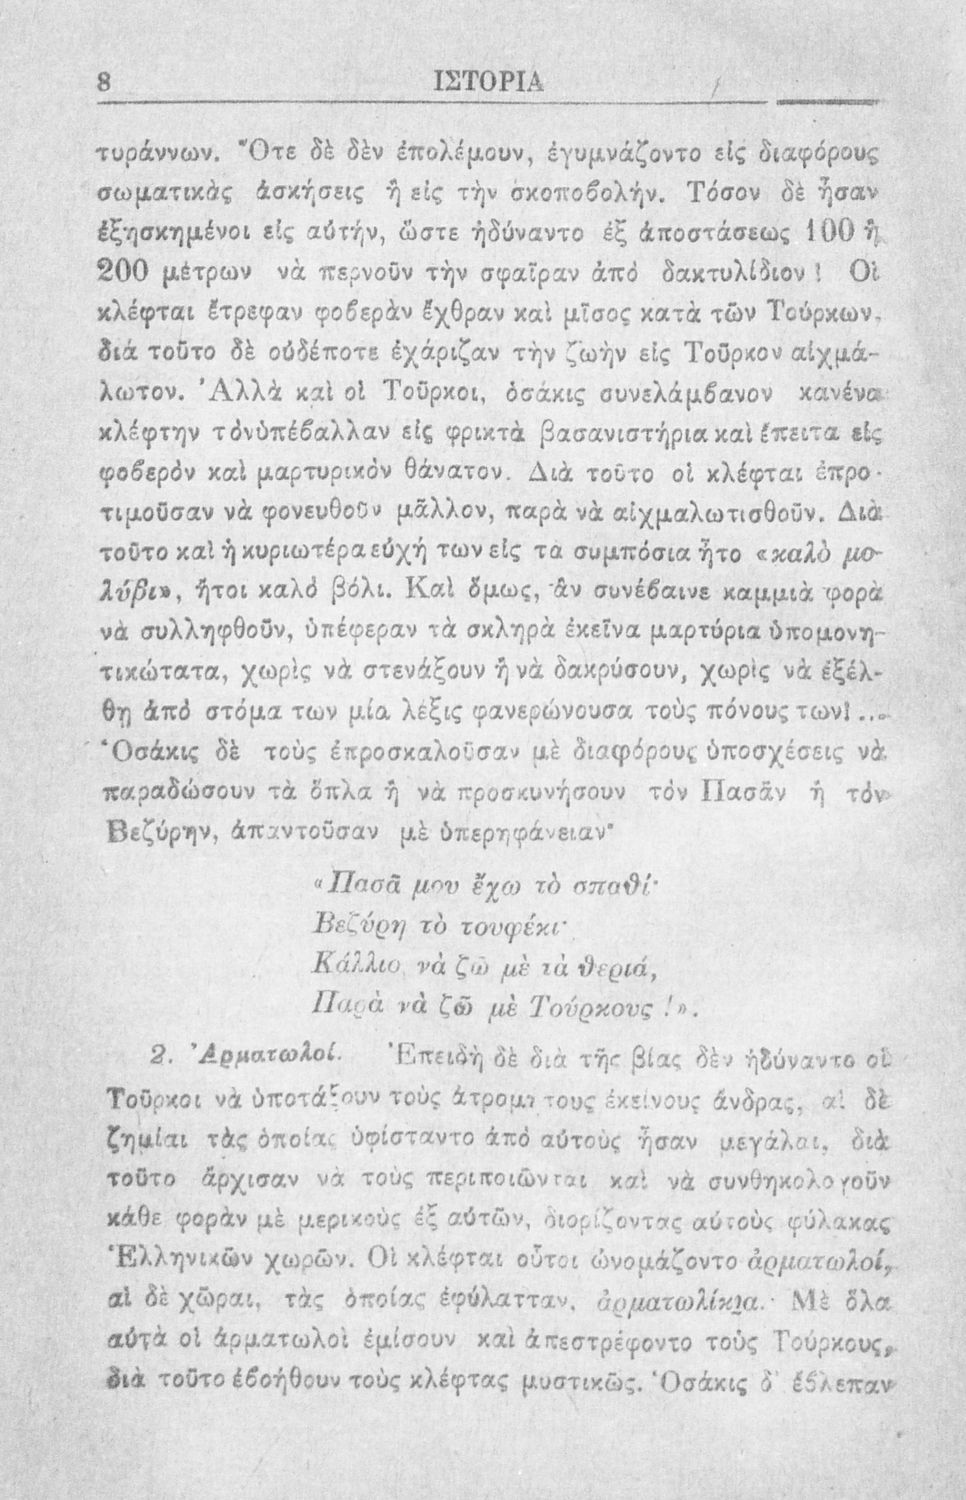 8 ΙΣΤΟΡΙΑ
τυράννων. Ὅτε δὲ δὲν ἐπολέμουν, ἐγυμνάζοντο εἰς διαφόρους
σωματικὰς ἀσκήσεις ἢ εἰς τὴν σκοποβολήν. Τόσον δὲ ἦσαν
ἐξησκημένοι εἰς αὐτήν, ὥστε ἠδύναντο ἐξ ἀποστάσεως 100 ἢ
200 μέτρων νὰ περνοῦν τὴν σφαῖραν ἀπὸ δακτυλίδιον! Οἱ
κλέφται ἔτρεφαν φοβερὰν ἔχθραν καὶ μῖσος κατὰ τῶν Τούρκων,
διὰ τοῦτο δὲ οὐδέποτε ἐχάριζαν τὴν ζωὴν εἰς Τοῦρκον αἰχμά-
λωτον. Ἀλλὰ καὶ οἱ Τοῦρκοι, ὁσάκις συνελάμβανον κανένα
κλέφτην τὸνὑπέβαλλαν εἰς φρικτὰ βασανιστήρια καὶ ἔπειτα εἰς
φοβερὸν καὶ μαρτυρικὸν θάνατον. Διὰ τοῦτο οἱ κλέφται ἐπρο-
τιμοῦσαν νὰ φονευθοῦν μᾶλλον, παρὰ νὰ αἰχμαλωτισθοῦν. Διὰ
τοῦτο καὶ ἡ κυριωτέρα εὐχή των εἰς τὰ συμπόσια ἦτο «καλὸ μο-
λύβι», ἤτοι καλὸ βόλι. Καὶ ὅμως, ἂν συνέβαινε καμμιὰ φορὰ
νὰ συλληφθοῦν, ὑπέφεραν τὰ σκληρὰ ἐκεῖνα μαρτύρια ὑπομονη-
τικώτατα, χωρὶς νὰ στενάξουν ἢ νὰ δακρύσουν, χωρὶς νὰ ἐξέλ-
θῃ ἀπὸ στόμα των μία λέξις φανερώνουσα τοὺς πόνους των!...
Ὁσάκις δὲ τοὺς ἐπροσκαλοῦσαν μὲ διαφόρους ὑποσχέσεις νὰ
παραδώσουν τὰ ὅπλα ἢ νὰ προσκυνήσουν τὸν Πασᾶν ἢ τὸν
Βεζύρην, ἀπαντοῦσαν μὲ ὑπερηφάνειαν·
«Πασᾶ μου ἔχω τὸ σπαθί·
Βεζύρη τὸ τουφέκι·
Κάλλιο νὰ ζῶ μὲ τὰ θεριά,
Παρὰ νὰ ζῶ μὲ Τούρκους!».
2. Ἀρματωλοί. Ἐπειδὴ δὲ διὰ τῆς βίας δὲν ἠδύναντο οἱ
Τοῦρκοι νὰ ὑποτάξουν τοὺς ἀτρομήτους ἐκείνους ἄνδρας, αἱ δὲ
ζημίαι τὰς ὁποίας ὑφίσταντο ἀπὸ αὐτοὺς ἦσαν μεγάλαι, διὰ
τοῦτο ἄρχισαν νὰ τοὺς περιποιῶνται καὶ νὰ συνθηκολογοῦν
κάθε φορὰν μὲ μερικοὺς ἐξ αὐτῶν, διορίζοντας αὐτοὺς φύλακας
Ἑλληνικῶν χωρῶν. Οἱ κλέφται οὗτοι ὠνομάζοντο ἀρματωλοί,
αἱ δὲ χῶραι, τὰς ὁποίας ἐφύλατταν, ἀρματωλίκια. Μὲ ὅλα
αὐτὰ οἱ ἀρματωλοὶ ἐμίσουν καὶ ἀπεστρέφοντο τοὺς Τούρκους,
διὰ τοῦτο ἐβοήθουν τοὺς κλέφτας μυστικῶς. Ὁσάκις δ' ἔβλεπαν